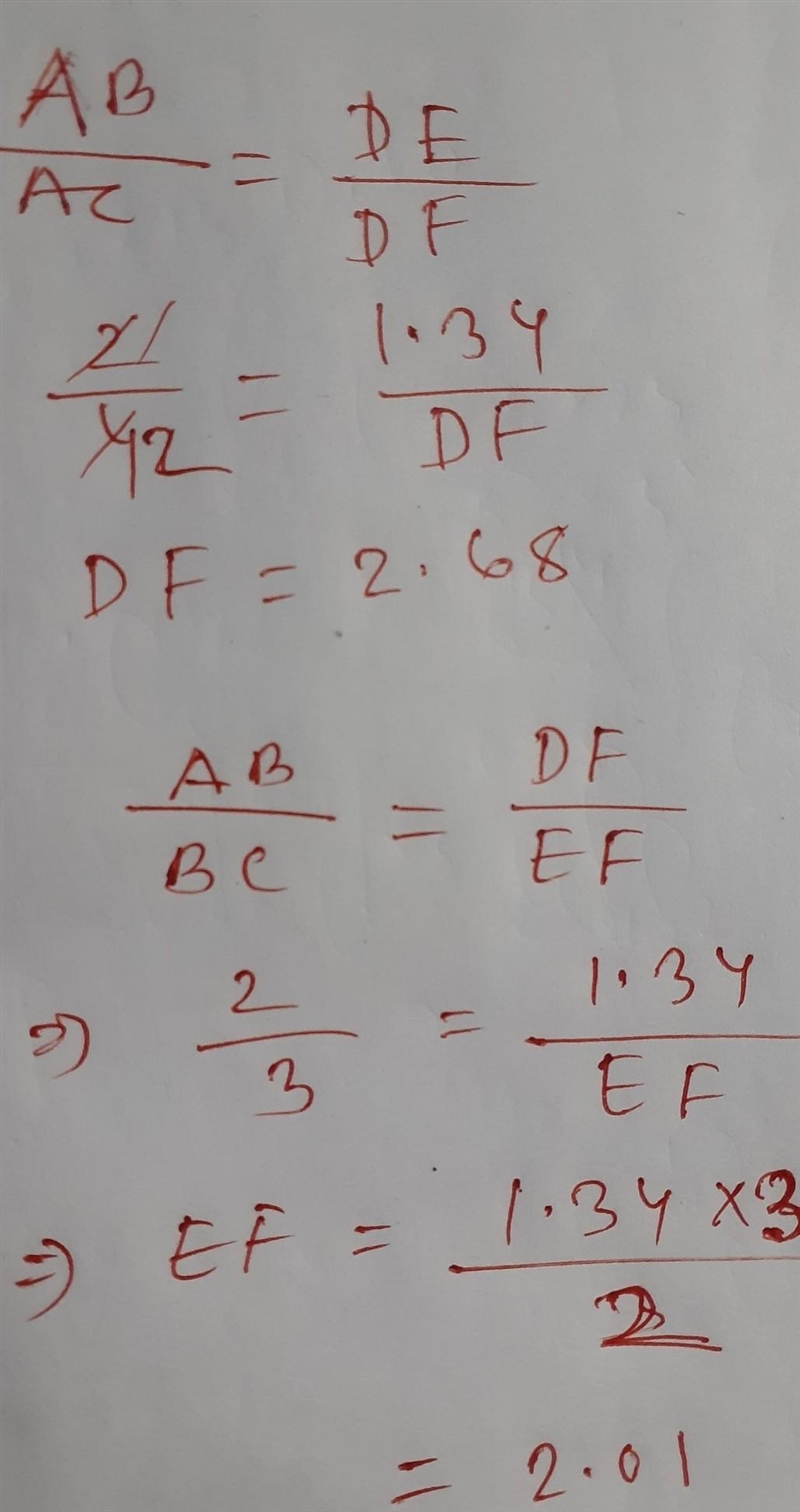 AB/AC = DE/DF
2/4 = 1.34/DF
DF = 2.68
AB/BC = DF/EF
⇒ 2/3 = 1.34/EF
⇒ EF = 1.34 × 3/2
= 2.01